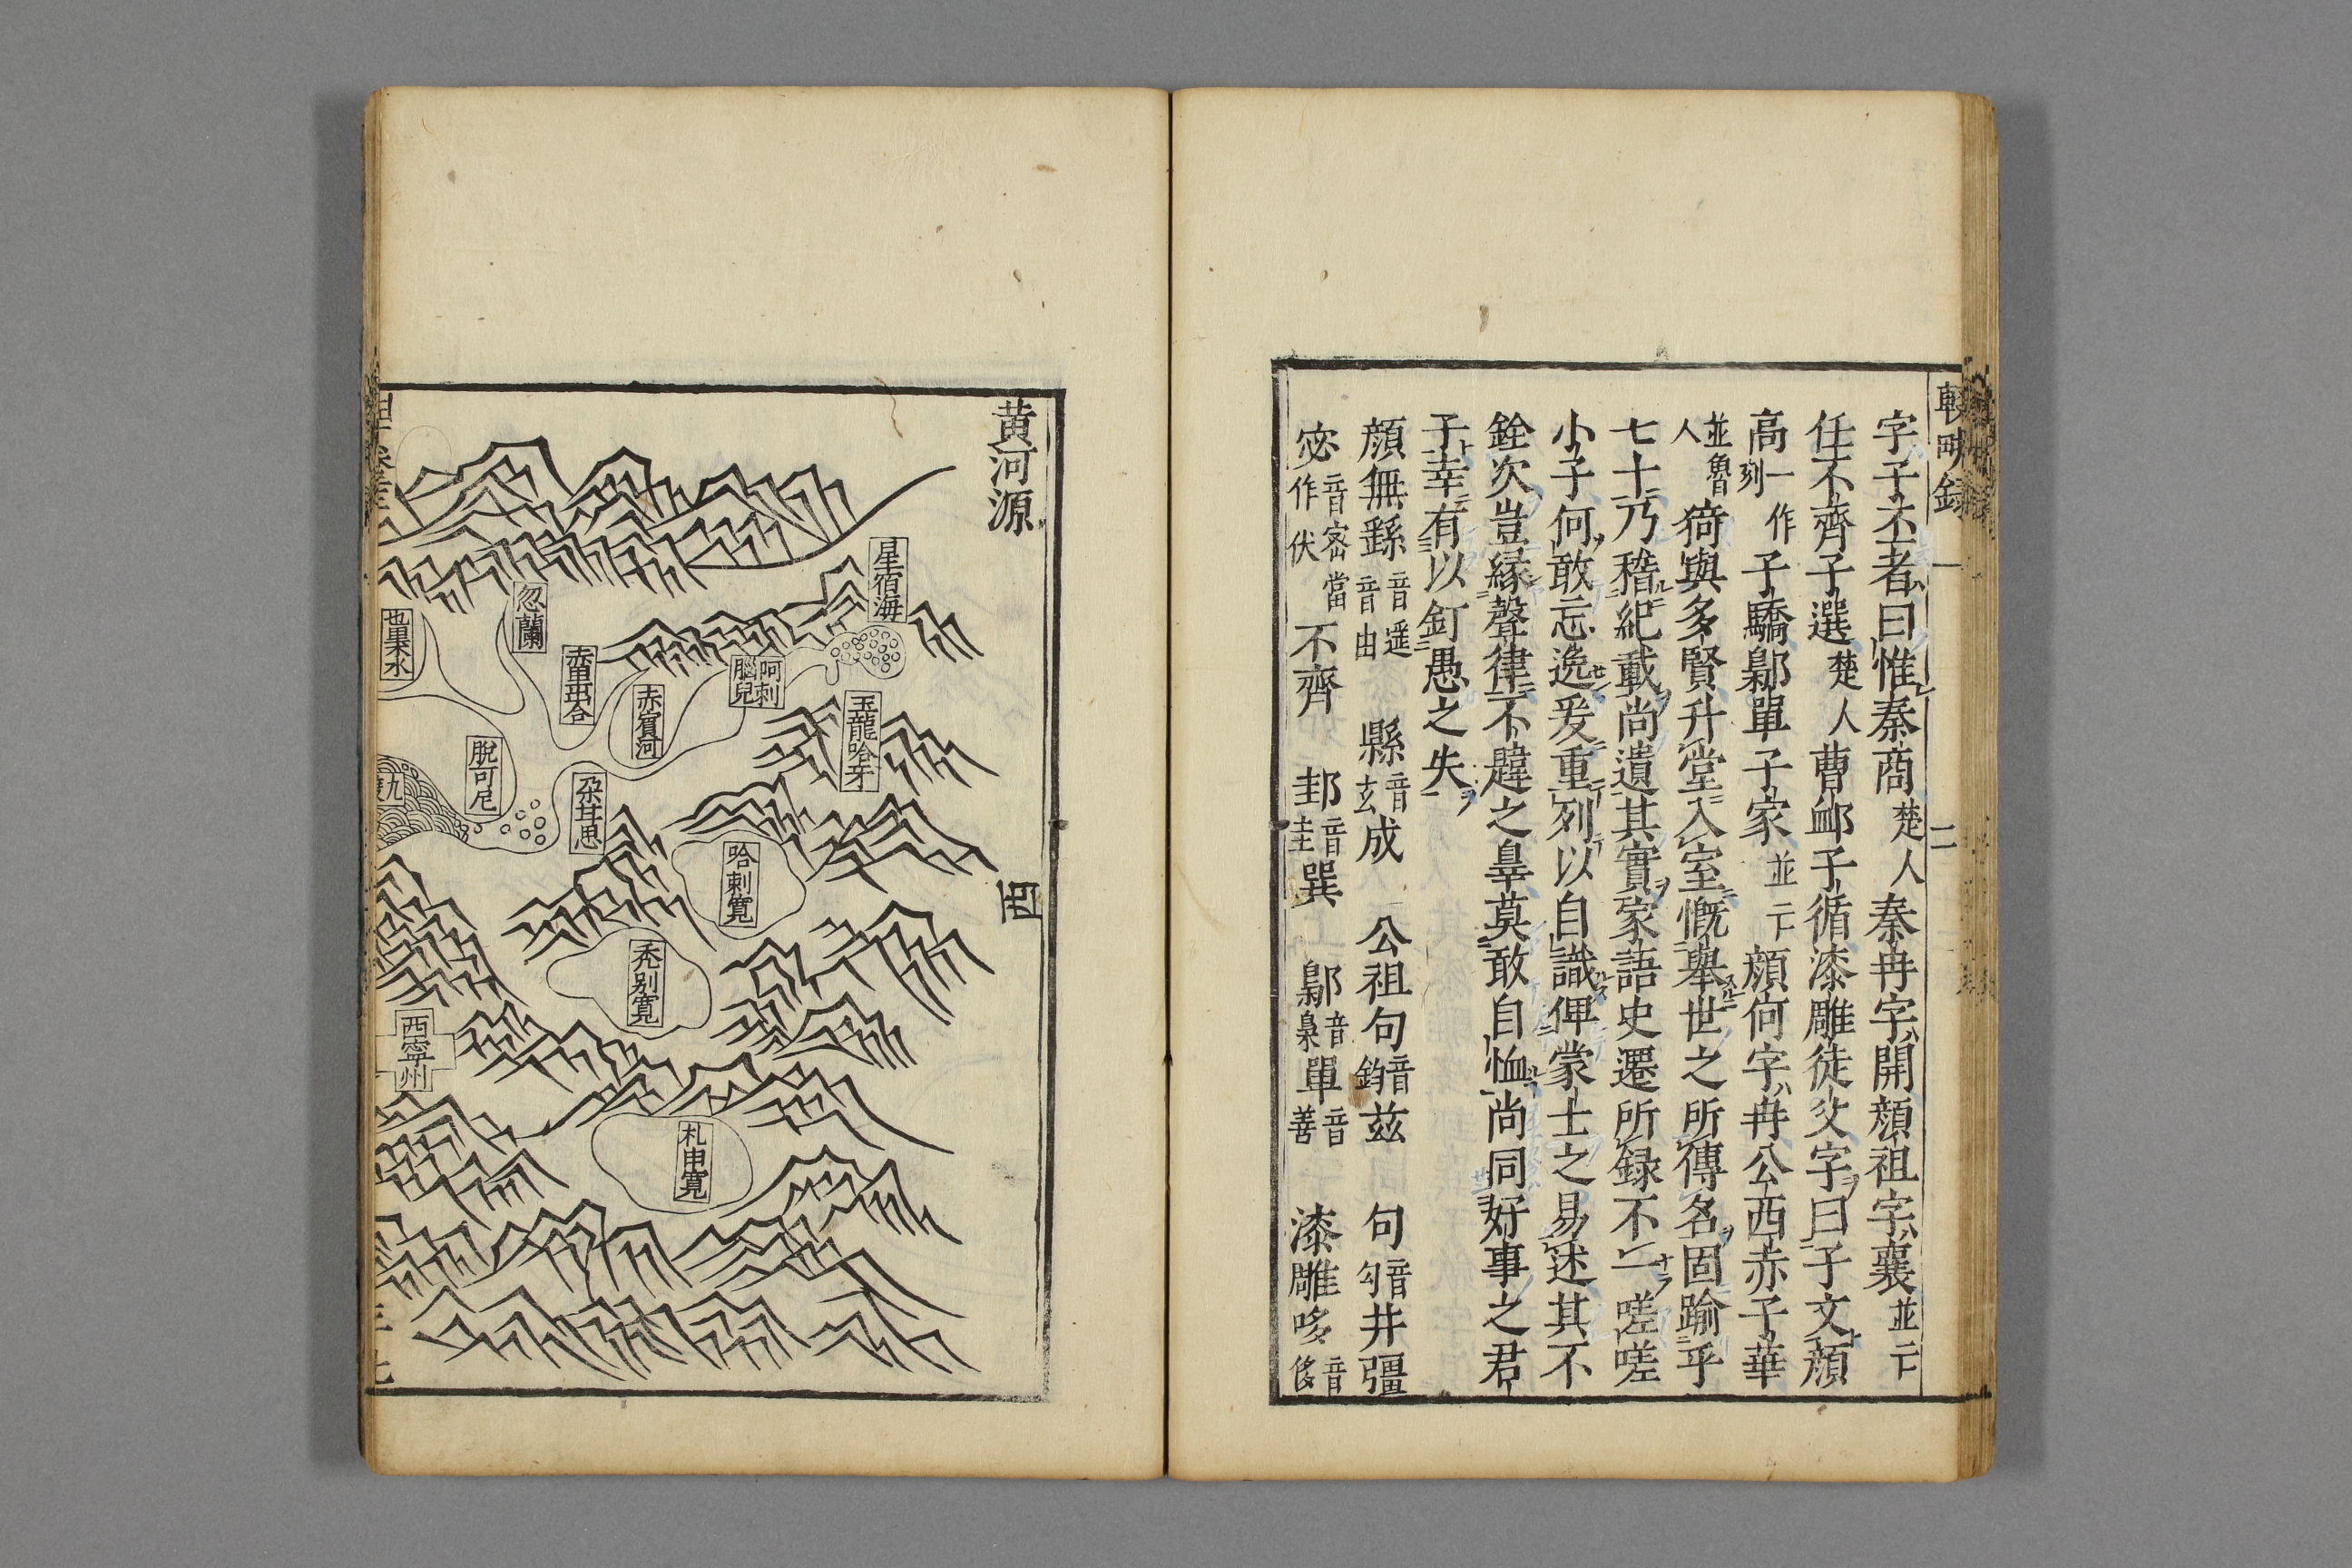 輟畊録
二
字子丕者曰惟秦商楚人秦冉字開顔祖字襄並一下
任不齊子選楚人曹䘏子循漆雕徒父字曰子文顔
高一作刻子驕鄡單子家並一下顔何字冉公西赤子華
並魯人猗與多賢升堂入室慨舉世之所傳名固踰乎
七十乃稽紀載尚遺其實家語史遷所録不一嗟嗟
小子何敢忘逸爰重列以自識俾蒙士之易述其不
銓次豈縁聲律不韙之辠莫敢自恤尚同好事之君
子幸有以訂愚之失
顔無繇音遥音由 縣音玄成 公祖句音鉤兹 句音勾井彊
宓音密當作伏不齊 邽音圭巽 鄡音梟單音善 漆雕哆音侈
黄河源
四
星宿海
阿剌腦兒
玉龍哈牙
赤賓河
赤里出合
忽蘭
也里朮
朶甘思
脱可尼
九度
哈剌寛
禿别寛
西寧州
札申寛